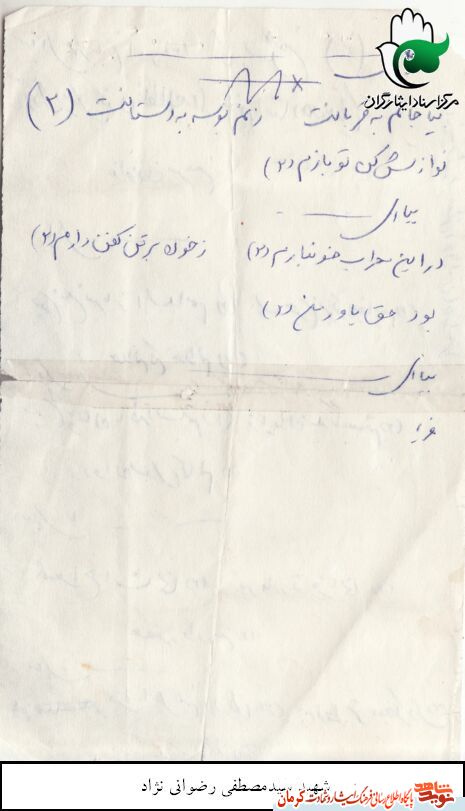 مرکز اسناد ایثارگران
بیا جانم به قربانت زنم بوسه به دستانت (۲)
نوازش کن تو بازم (۲)
بیا ای
در این محراب خونبارم (۲) ز خون بر تن کفن دارم (۲)
بود حق یاور من (۲)
بیا ای
شهید سیدمصطفی رضوانی نژاد
نوید شاهد
پایگاه اطلاع رسانی فرهنگ ایثار و شهادت کرمان